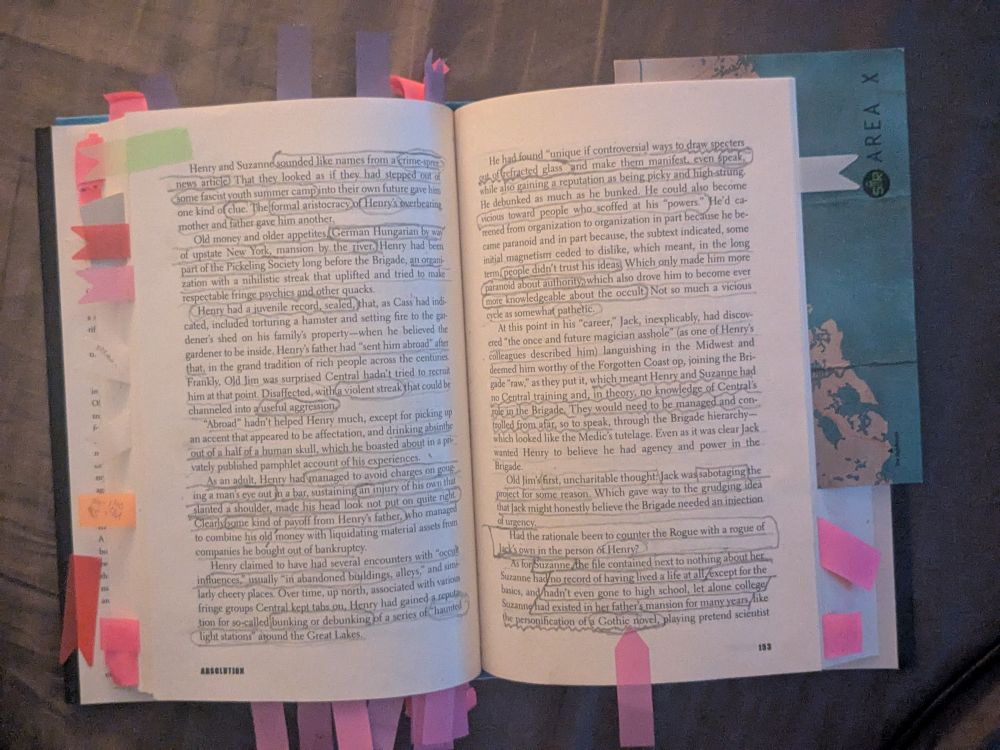 Henry and Suzanne sounded like names from a crime-spree
news article. That they looked as if they had stepped out of
some fascist youth summer camp into their own future gave him
one kind of clue. The formal aristocracy of Henry's overbearing
mother and father gave him another.
Old money and older appetites, German Hungarian by way
of upstate New York, mansion by the river. Henry had been
part of the Pickeling Society long before the Brigade, an organi-
zation with a nihilistic streak that uplifted and tried to make
respectable fringe psychics and other quacks.
Henry had a juvenile record, sealed, that, as Cass had indi-
cated, included torturing a hamster and setting fire to the gar-
dener's shed on his family's property—when he believed the
gardener to be inside. Henry's father had "sent him abroad" after
that, in the grand tradition of rich people across the centuries.
Frankly, Old Jim was surprised Central hadn't tried to recruit
him at that point. Disaffected, with a violent streak that could be
channeled into a useful aggression.
"Abroad" hadn't helped Henry much, except for picking up
an accent that appeared to be affectation, and drinking absinthe
out of a half of a human skull, which he boasted about in a pri-
vately published pamphlet account of his experiences.
As an adult, Henry had managed to avoid charges on goug-
ing a man's eye out in a bar, sustaining an injury of his own that
slanted a shoulder, made his head look not put on quite right.
Clearly some kind of payoff from Henry's father, who managed
to combine his old money with liquidating material assets from
companies he bought out of bankruptcy.
Henry claimed to have had several encounters with "occult
influences," usually "in abandoned buildings, alleys," and simi-
larly cheery places. Over time, up north, associated with various
fringe groups Central kept tabs on, Henry had gained a reputa-
tion for so-called bunking or debunking of a series of "haunted
light stations" around the Great Lakes.
ABSOLUTION
He had found "unique if controversial ways to draw specters
out of refracted glass and make them manifest, even speak,"
while also gaining a reputation as being picky and high-strung.
He debunked as much as he bunked. He could also become
vicious toward people who scoffed at his "powers." He'd ca-
reened from organization to organization in part because he be-
came paranoid and in part because, the subtext indicated, some
initial magnetism ceded to dislike, which meant, in the long
term, people didn't trust his ideas. Which only made him more
paranoid about authority, which also drove him to become ever
more knowledgeable about the occult. Not so much a vicious
cycle as somewhat pathetic.
At this point in his "career," Jack, inexplicably, had discov-
ered "the once and future magician asshole" (as one of Henry's
colleagues described him) languishing in the Midwest and
deemed him worthy of the Forgotten Coast op, joining the Bri-
gade "raw," as they put it, which meant Henry and Suzanne had
no Central training and, in theory, no knowledge of Central's
role in the Brigade. They would need to be managed and con-
trolled from afar, so to speak, through the Brigade hierarchy—
which looked like the Medic's tutelage. Even as it was clear Jack
wanted Henry to believe he had agency and power in the
Brigade.
Old Jim's first, uncharitable thought: Jack was sabotaging the
project for some reason. Which gave way to the grudging idea
that Jack might honestly believe the Brigade needed an injection
of urgency.
Had the rationale been to counter the Rogue with a rogue of
Jack's own in the person of Henry?
As for Suzanne, the file contained next to nothing about her.
Suzanne had no record of having lived a life at all, except for the
basics, and hadn't even gone to high school, let alone college.
Suzanne had existed in her father's mansion for many years, like
the personification of a Gothic novel, playing pretend scientist
153
AREA X